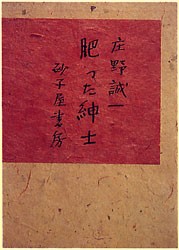 庄野誠一
肥つた紳士
砂子屋書房